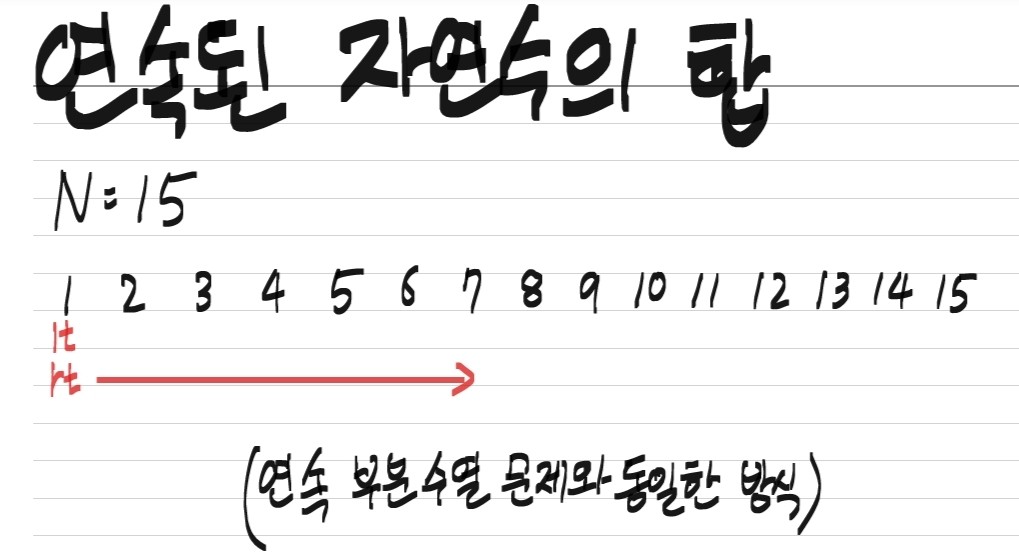 연속된 자연수의 합
N=15
1 2 3 4 5 6 7 8 9 10 11 12 13 14 15
lt
rt
(연속 부분수열 문제와 동일한 방식)